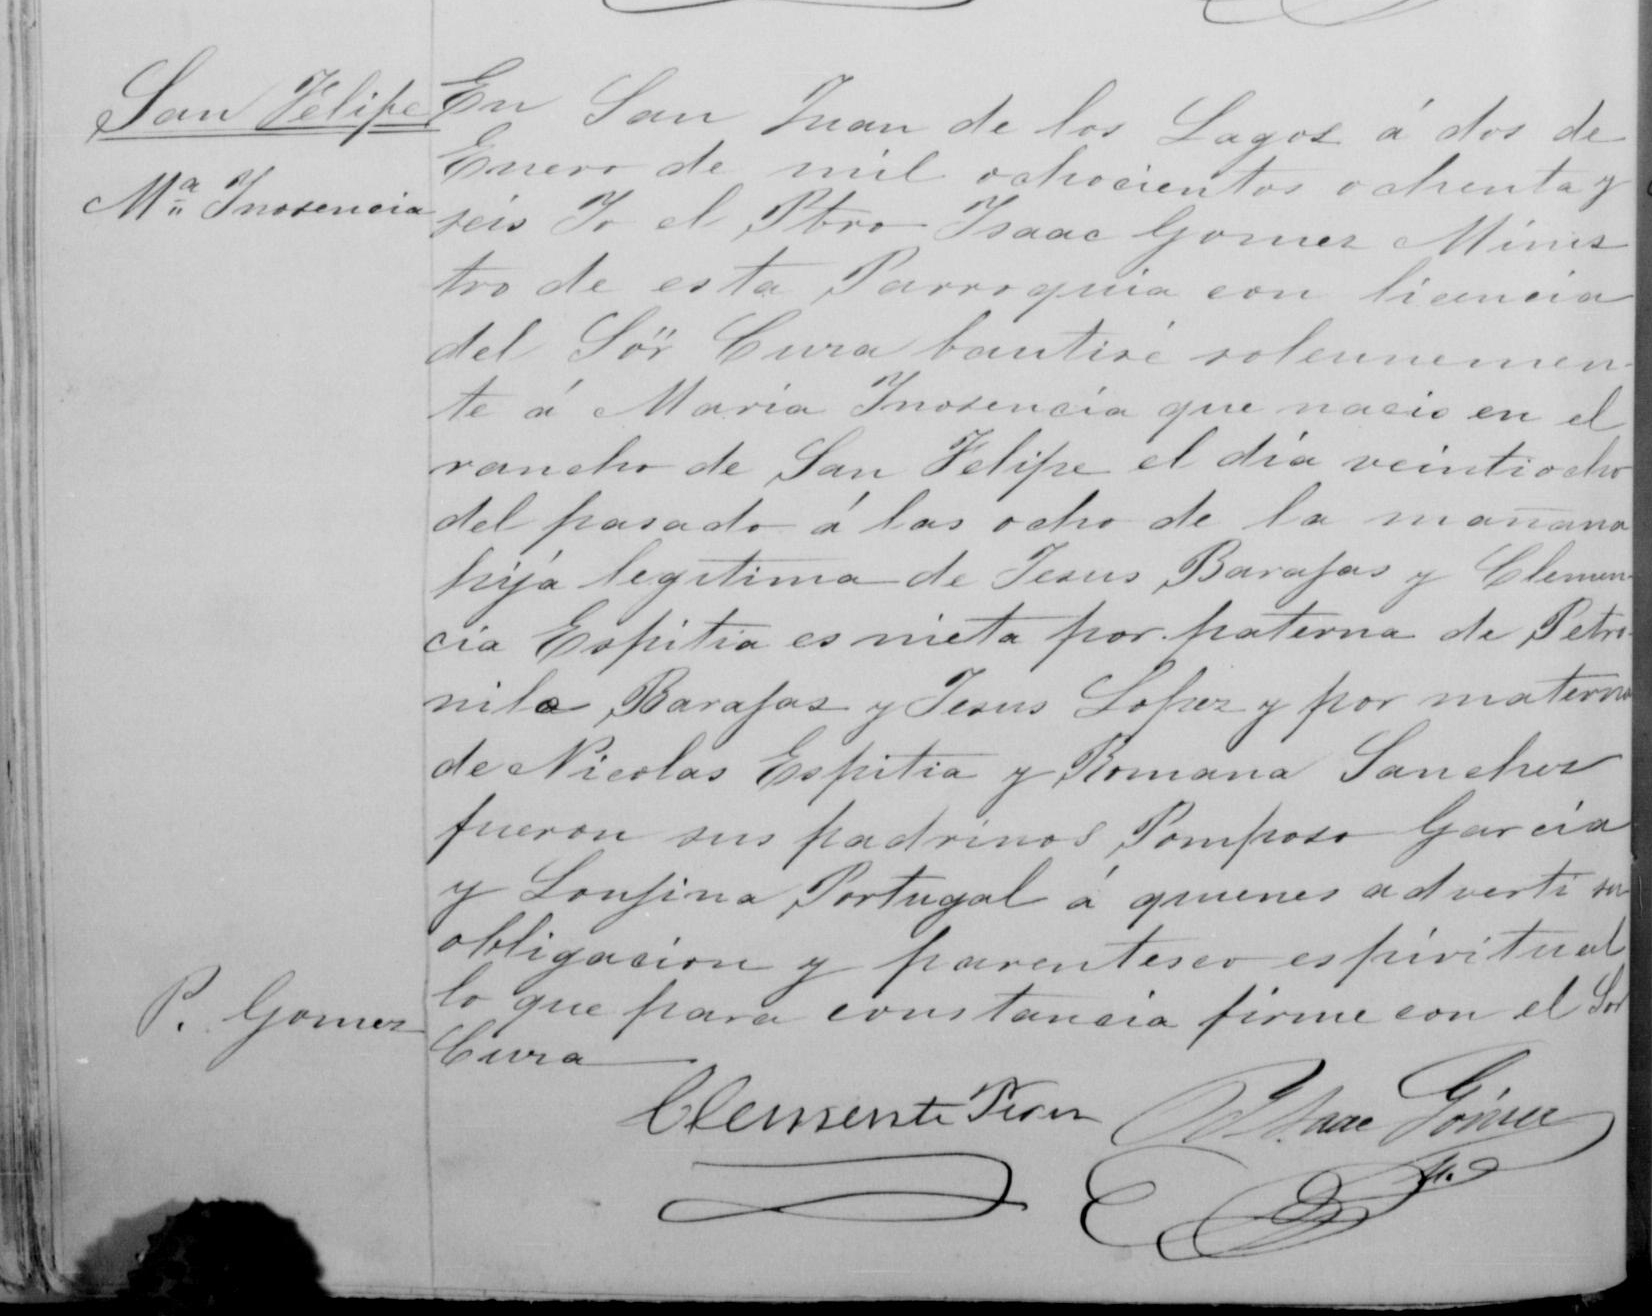 San Felipe
Mª Inosencia
En San Juan de los Lagos á dos de
Enero de mil ochocientos ochenta y
seis Yo el Pbro Isaac Gomez Minis
tro de esta Parroquia con licencia
del Sör Cura bautisé solennemen-
te á Maria Inosencia que nacio en el
rancho de San Felipe el día veintiocho
del pasado á las ocho de la mañana
hija legitima de Jesus Barajas y Clemen-
cia Espitia es nieta por paterna de Petro-
nilo Barajas y Jesus Lopez y por materno
de Nicolas Espitia y Romana Sanchez
fueron sus padrinos Pomposo Garcia
y Portugal á quienes adverti su
obligacion y parentesco espiritual
lo que para constancia firme con el Sor
Cura
P. Gomez
Clemente
Isaac Gómez